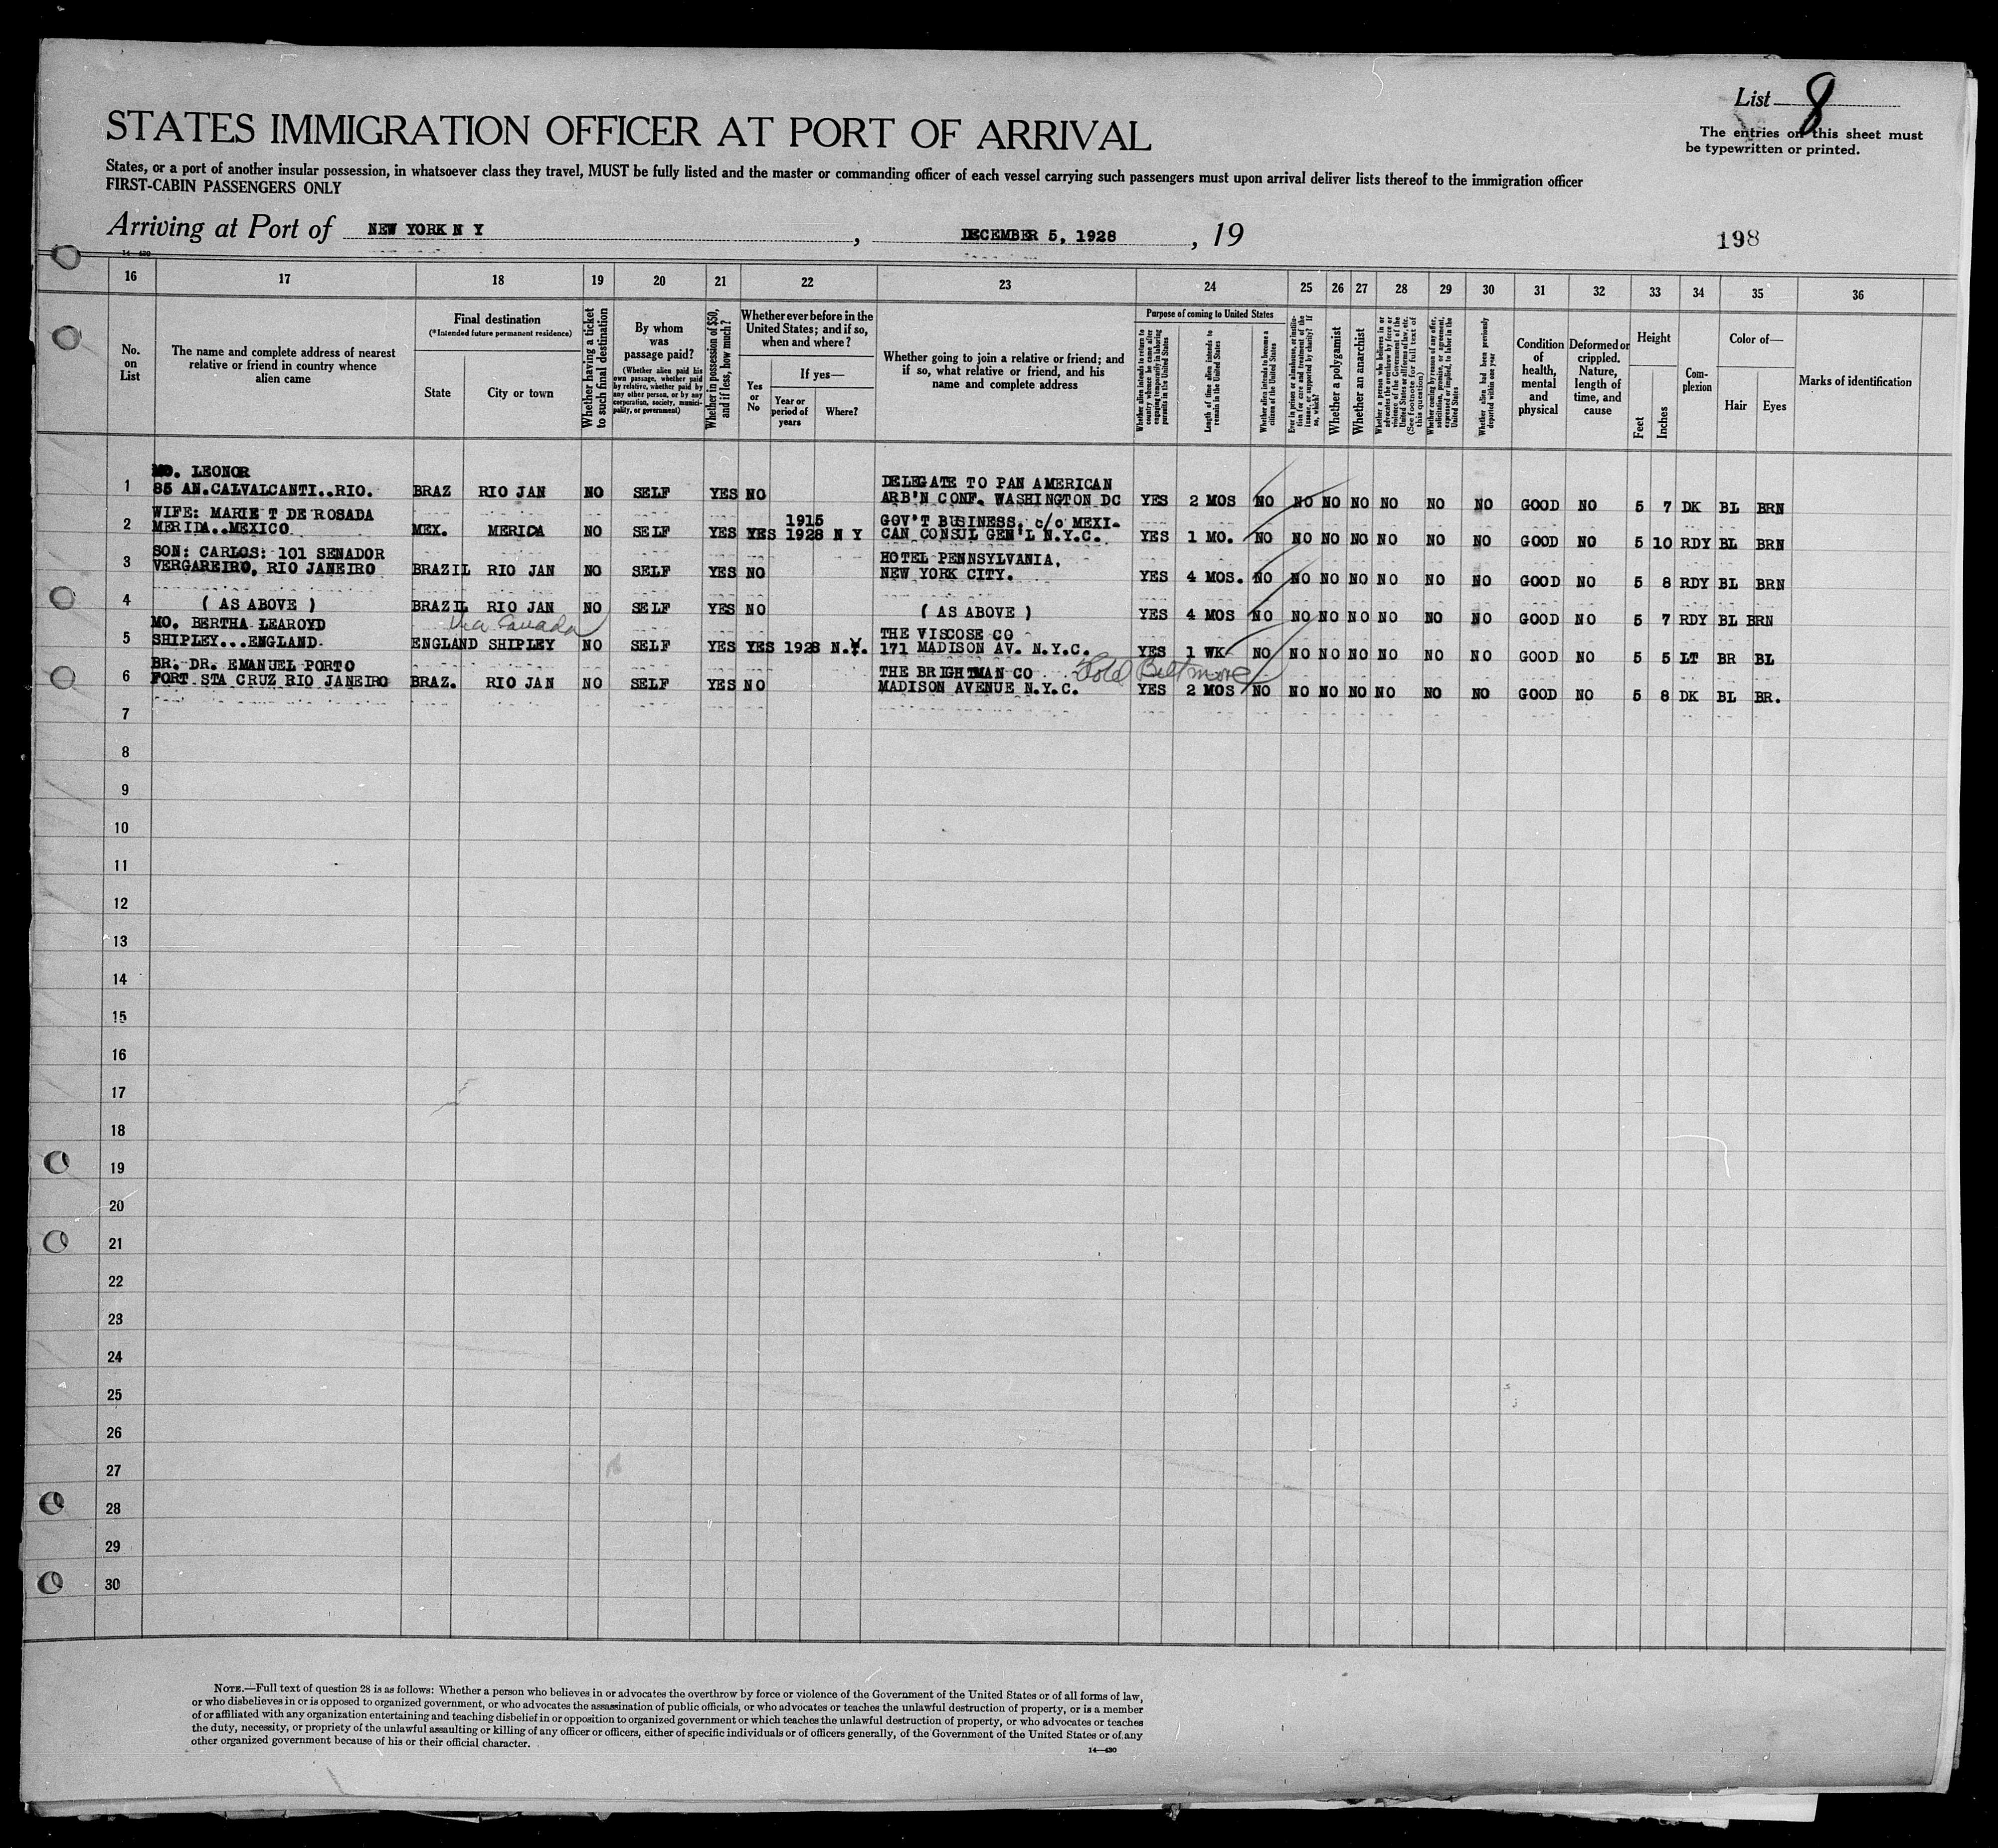 List 8
The entries on this sheet must
be typewritten or printed.
STATES IMMIGRATION OFFICER AT PORT OF ARRIVAL
States, or a port of another insular possession, in whatsoever class they travel, MUST be fully listed and the master or commanding officer of each vessel carrying such passengers must upon arrival deliver lists thereof to the immigration officer
FIRST-CABIN PASSENGERS ONLY
Arriving at Port of NEW YORK N Y, DECEMBER 5, 1928, 19
198
14—430
16 17 18 19 20 21 22 23 24 25 26 27 28 29 30 31 32 33 34 35 36
No. on List
The name and complete address of nearest relative or friend in country whence alien came
Final destination
(*Intended future permanent residence)
State
City or town
Whether having a ticket to such final destination
By whom was passage paid?
(Whether alien paid his own passage, whether paid by relative, whether paid by any other person, or by any corporation, society, municipality, or government)
Whether in possession of $50, and if less, how much?
Whether ever before in the United States; and if so, when and where?
Yes or No
If yes—
Year or period of years
Where?
Whether going to join a relative or friend; and if so, what relative or friend, and his name and complete address
Purpose of coming to United States
Whether alien intends to return to country whence he came after engaging temporarily in laboring pursuits in the United States
Length of time alien intends to remain in the United States
Whether alien intends to become a citizen of the United States
Ever in prison or almshouse, or institution for care and treatment of the insane, or supported by charity? If so, which?
Whether a polygamist
Whether an anarchist
Whether a person who believes in or advocates the overthrow by force or violence of the Government of the United States or all forms of law, etc. (See footnote for full text of this question)
Whether coming by reason of any offer, solicitation, promise, or agreement, expressed or implied, to labor in the United States
Whether alien had been previously deported within one year
Condition of health, mental and physical
Deformed or crippled. Nature, length of time, and cause
Height
Feet
Inches
Complexion
Color of—
Hair
Eyes
Marks of identification
MO. LEONOR DELEGATE TO PAN AMERICAN
1 85 AN.CALVALCANTI..RIO. BRAZ RIO JAN NO SELF YES NO ARB'N CONF. WASHINGTON DC YES 2 MOS NO NO NO NO NO NO NO GOOD NO 5 7 DK BL BRN
WIFE: MARIE T DE ROSADA 1915 GOV'T BUSINESS. c/o MEXI-
2 MERIDA..MEXICO MEX. MERICA NO SELF YES YES 1928 N Y CAN CONSUL GEN'L N.Y.C. YES 1 MO. NO NO NO NO NO NO NO GOOD NO 5 10 RDY BL BRN
SON: CARLOS: 101 SENADOR HOTEL PENNSYLVANIA,
3 VERGAREIRO, RIO JANEIRO BRAZIL RIO JAN NO SELF YES NO NEW YORK CITY. YES 4 MOS. NO NO NO NO NO NO NO GOOD NO 5 8 RDY BL BRN
4 ( AS ABOVE ) BRAZIL RIO JAN NO SELF YES NO ( AS ABOVE ) YES 4 MOS NO NO NO NO NO NO NO GOOD NO 5 7 RDY BL BRN
MO. BERTHA LEAROYD Via Canada THE VISCOSE CO
5 SHIPLEY...ENGLAND. ENGLAND SHIPLEY NO SELF YES YES 1928 N.Y. 171 MADISON AV. N.Y.C. YES 1 WK NO NO NO NO NO NO NO GOOD NO 5 5 LT BR BL
BR. DR. EMANUEL PORTO THE BRIGHTMAN CO Hotel Biltmore
6 FORT STA CRUZ RIO JANEIRO BRAZ. RIO JAN NO SELF YES NO MADISON AVENUE N.Y.C. YES 2 MOS NO NO NO NO NO NO NO GOOD NO 5 8 DK BL BR.
7
8
9
10
11
12
13
14
15
16
17
18
19
20
21
22
23
24
25
26
27
28
29
30
NOTE.—Full text of question 28 is as follows: Whether a person who believes in or advocates the overthrow by force or violence of the Government of the United States or of all forms of law,
or who disbelieves in or is opposed to organized government, or who advocates the assassination of public officials, or who advocates or teaches the unlawful destruction of property, or is a member
of or affiliated with any organization entertaining and teaching disbelief in or opposition to organized government or which teaches the unlawful destruction of property, or who advocates or teaches
the duty, necessity, or propriety of the unlawful assaulting or killing of any officer or officers, either of specific individuals or of officers generally, of the Government of the United States or of any
other organized government because of his or their official character.
14—430